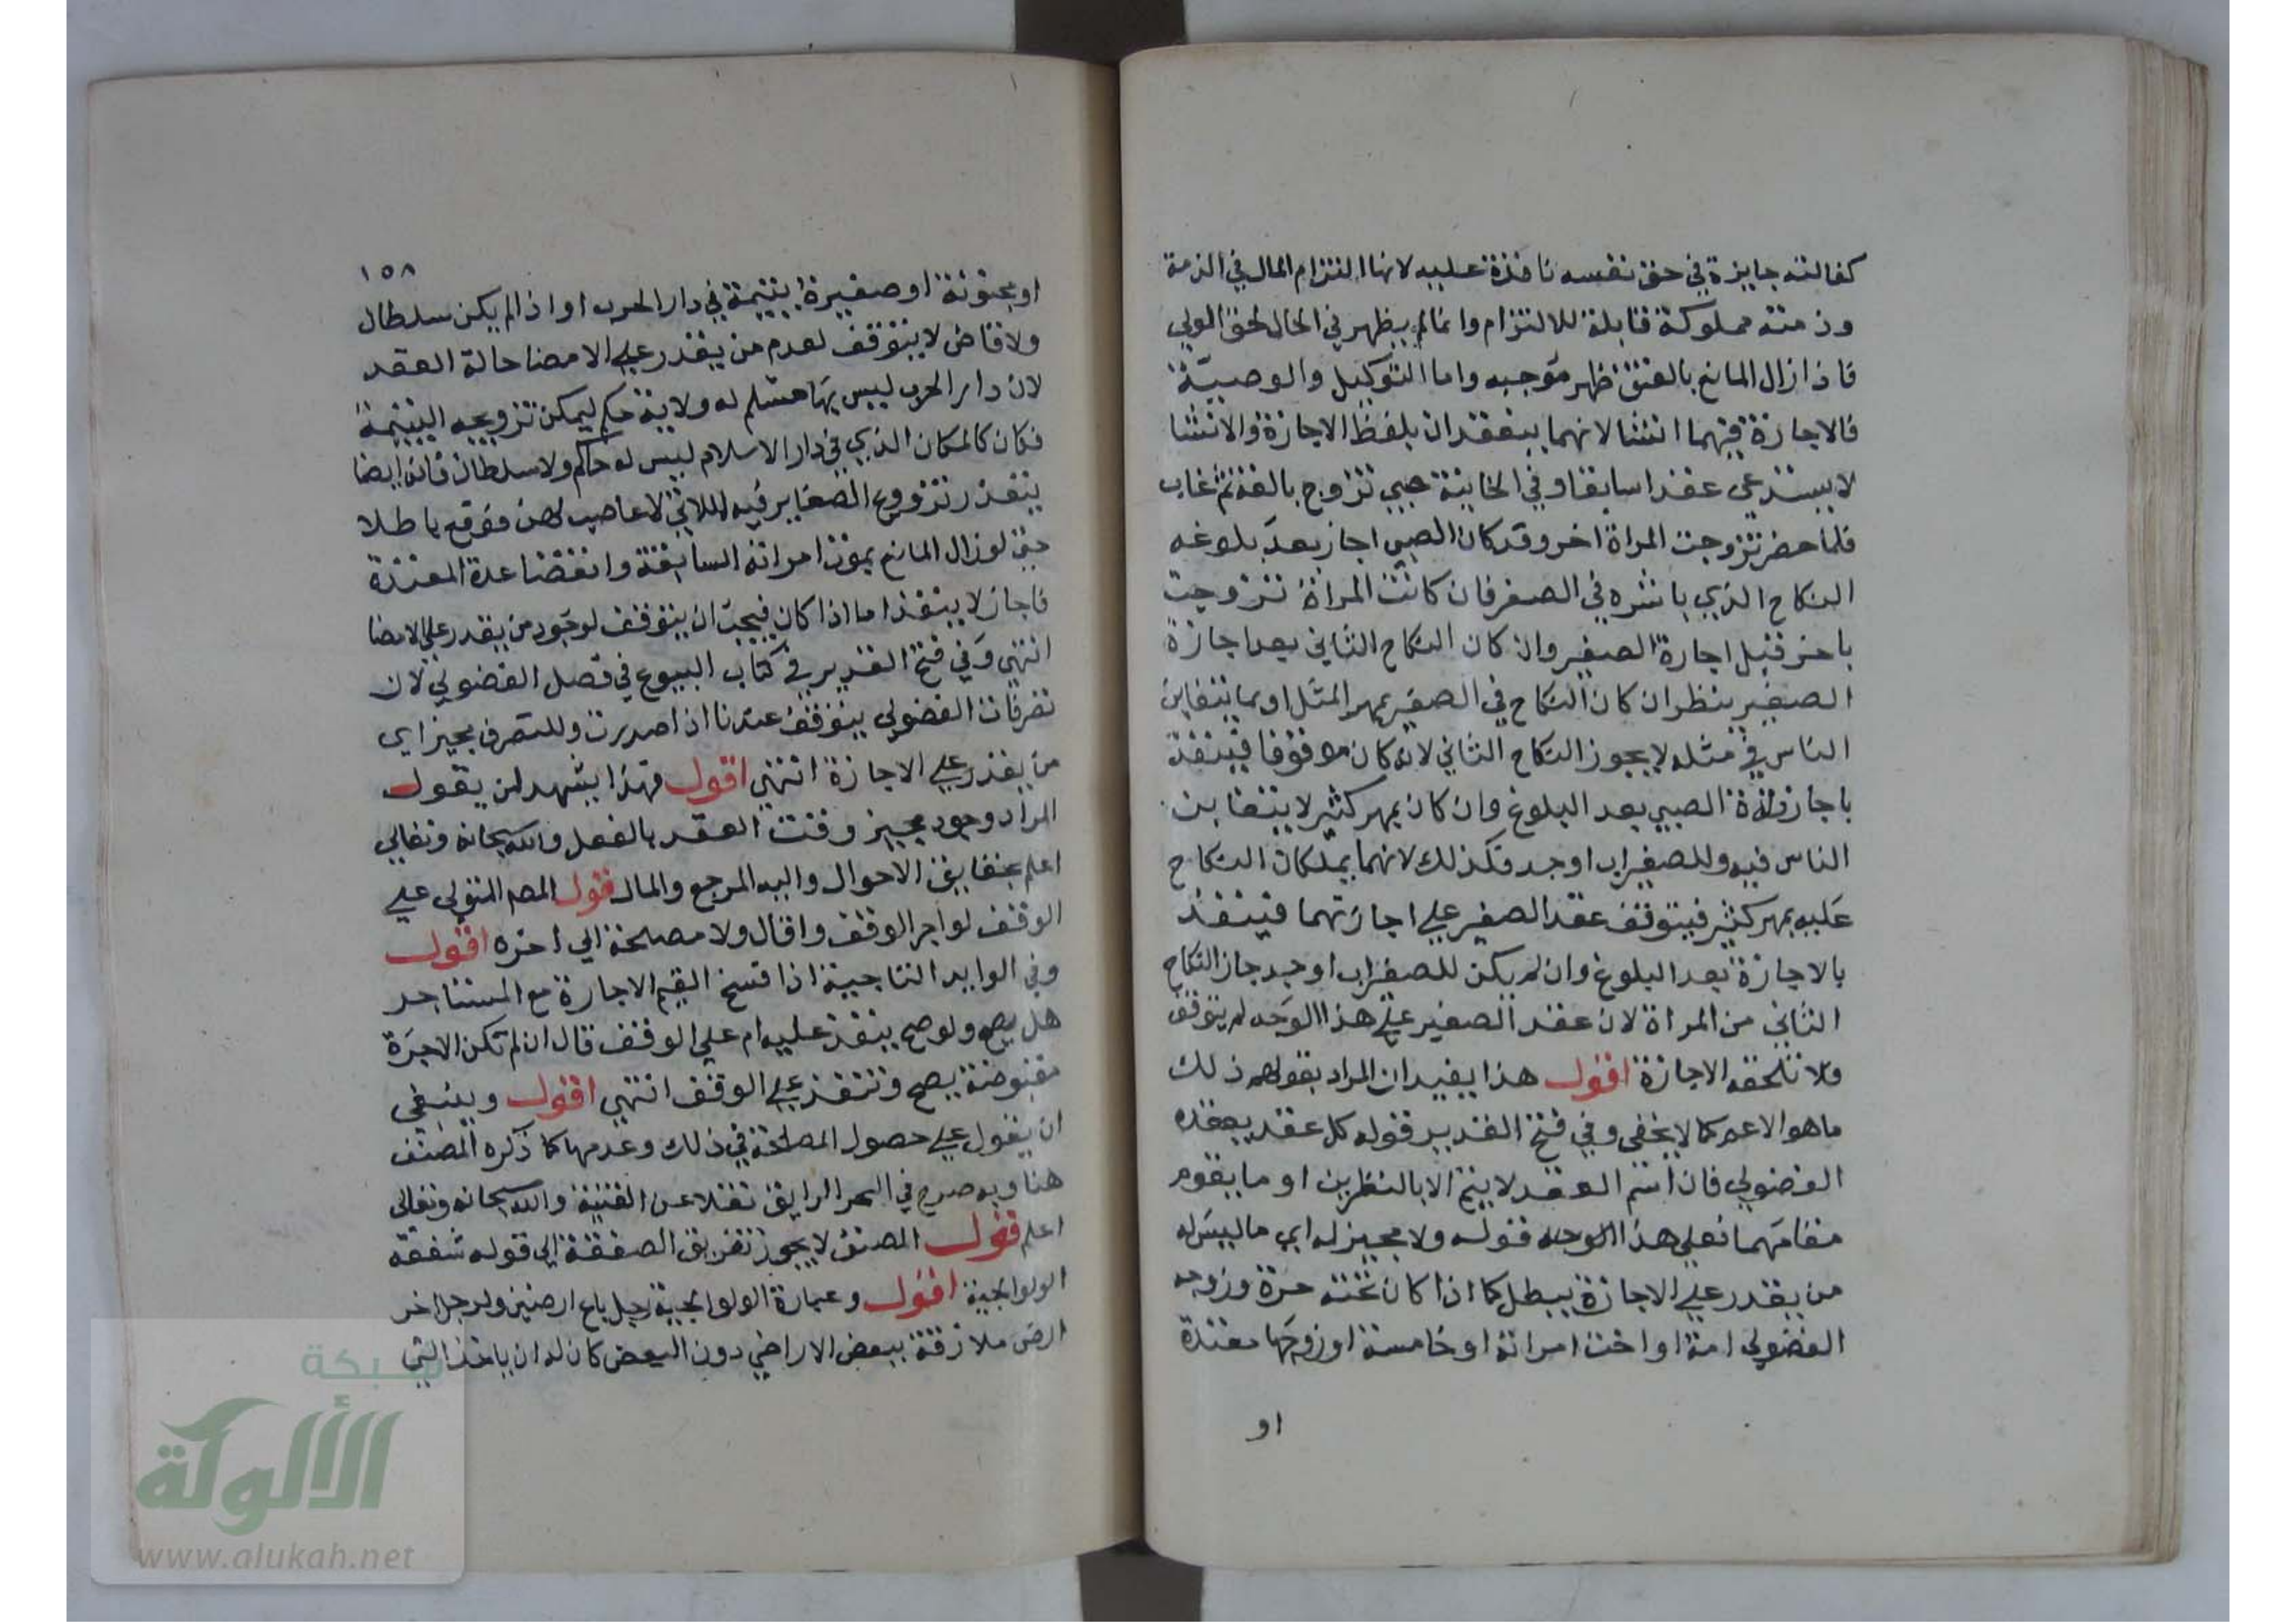 كفالته جايزة في حق نفسه نافذة عليه لانها التزام المال في الذمة
وذمته مملوكة قابلة للالتزام وانما لم يظهر في الحال لحق المولي
فاذا زال المانع بالعتق ظهر موجبه واما التوكيل والوصية
فالاجازة فيهما انشا لانهما ينعقدان بلفظ الاجازة والانشا
لا يستدعي عقدا سابقا وفي الخانية صبي تزوج بالغة ثم غاب
فلما حضر تزوجت المراة اخر وقد كان الصبي اجاز بعد بلوغه
النكاح الذي باشره في الصغر فان كانت المراة تزوجت
باخر قبل اجازة الصغير وان كان النكاح الثاني بعد اجازة
الصغير ينظر ان كان النكاح في الصغر بمهر المثل او بما يتغابن
الناس في مثله لا يجوز النكاح الثاني لانه كان موقوفا فينفذ
باجازة الصبي بعد البلوغ وان كان بمهر كثير لا يتغابن
الناس فيه وللصغير اب او جد فكذلك لانهما يملكان النكاح
عليه بمهر كثير فيتوقف عقد الصغير علي اجازتهما فينفذ
بالاجازة بعد البلوغ وان لم يكن للصغير اب او جد جاز النكاح
الثاني من المراة لان عقد الصغير علي هذا الوجه لم يتوقف
فلا تلحقه الاجازة اقول هذا يفيد ان المراد بقولهم ذلك
ما هو الاعم كما لا يخفي وفي فتح القدير قوله كل عقد يعقده
الفضولي فان اسم العقد لا يتم الا بالشطرين او ما يقوم
مقامهما فعلي هذا الوجه قوله ولا مجيز له اي ما ليس له
من يقدر علي الاجازة يبطل كما اذا كان تحته حرة وزوجه
الفضولي امة او اخت امراته او خامسة او زوجها معتدة
او
١٥٨
او مجنونة او صغيرة يتيمة في دار الحرب او اذا لم يكن سلطان
ولا قاض لا يتوقف لعدم من يقدر علي الامضا حالة العقد
لان دار الحرب ليس بها مسلم له ولاية حكم ليمكن تزويجه اليتيمة
فكان كالمكان الذي في دار الاسلام ليس له حاكم ولا سلطان فانه ايضا
يتعذر تزويج الصغاير فيه اللاتي لا عاصب لهن فوقع باطلا
حتي لو زال المانع بموت امراته السابقة وانقضا عدة المعتدة
فاجاز لا ينفذ اما اذا كان فيجب ان يتوقف لوجود من يقدر علي الامضا
انتهي وفي فتح القدير في كتاب البيوع في فصل الفضولي لان
تصرفات الفضولي يتوقف عندنا اذا صدرت وللتصرف مجيز اي
من يقدر علي الاجازة انتهي اقول فهذا يشهد لمن يقول
المراد وجود مجيز وقت العقد بالفعل والله سبحانه وتعالي
اعلم بحقايق الاحوال واليه المرجع والمال قول المصم المتولي علي
الوقف لو اجر الوقف واقال ولا مصلحة الي اخره اقول
وفي الوايد التاجية اذا فسخ القيم الاجارة مع المستاجر
هل يصح ولو صح ينفذ عليه ام علي الوقف قال ان لم تكن الاجرة
مقبوضة يصح وتنفذ علي الوقف انتهي اقول وينبغي
ان يعول علي حصول المصلحة في ذلك وعدمها كما ذكره المصنف
هنا وبه صرح في البحر الرايق نقلا عن القنية والله سبحانه وتعالي
اعلم قول المصنف لا يجوز تفريق الصفقة الي قوله شفقه
الولوالجية اقول وعبارة الولوالجية رجل باع ارضين ولرجل اخر
ارض ملازقة ببعض الاراضي دون البعض كان له ان ياخذ التي
شبكة
الألوكة
www.alukah.net